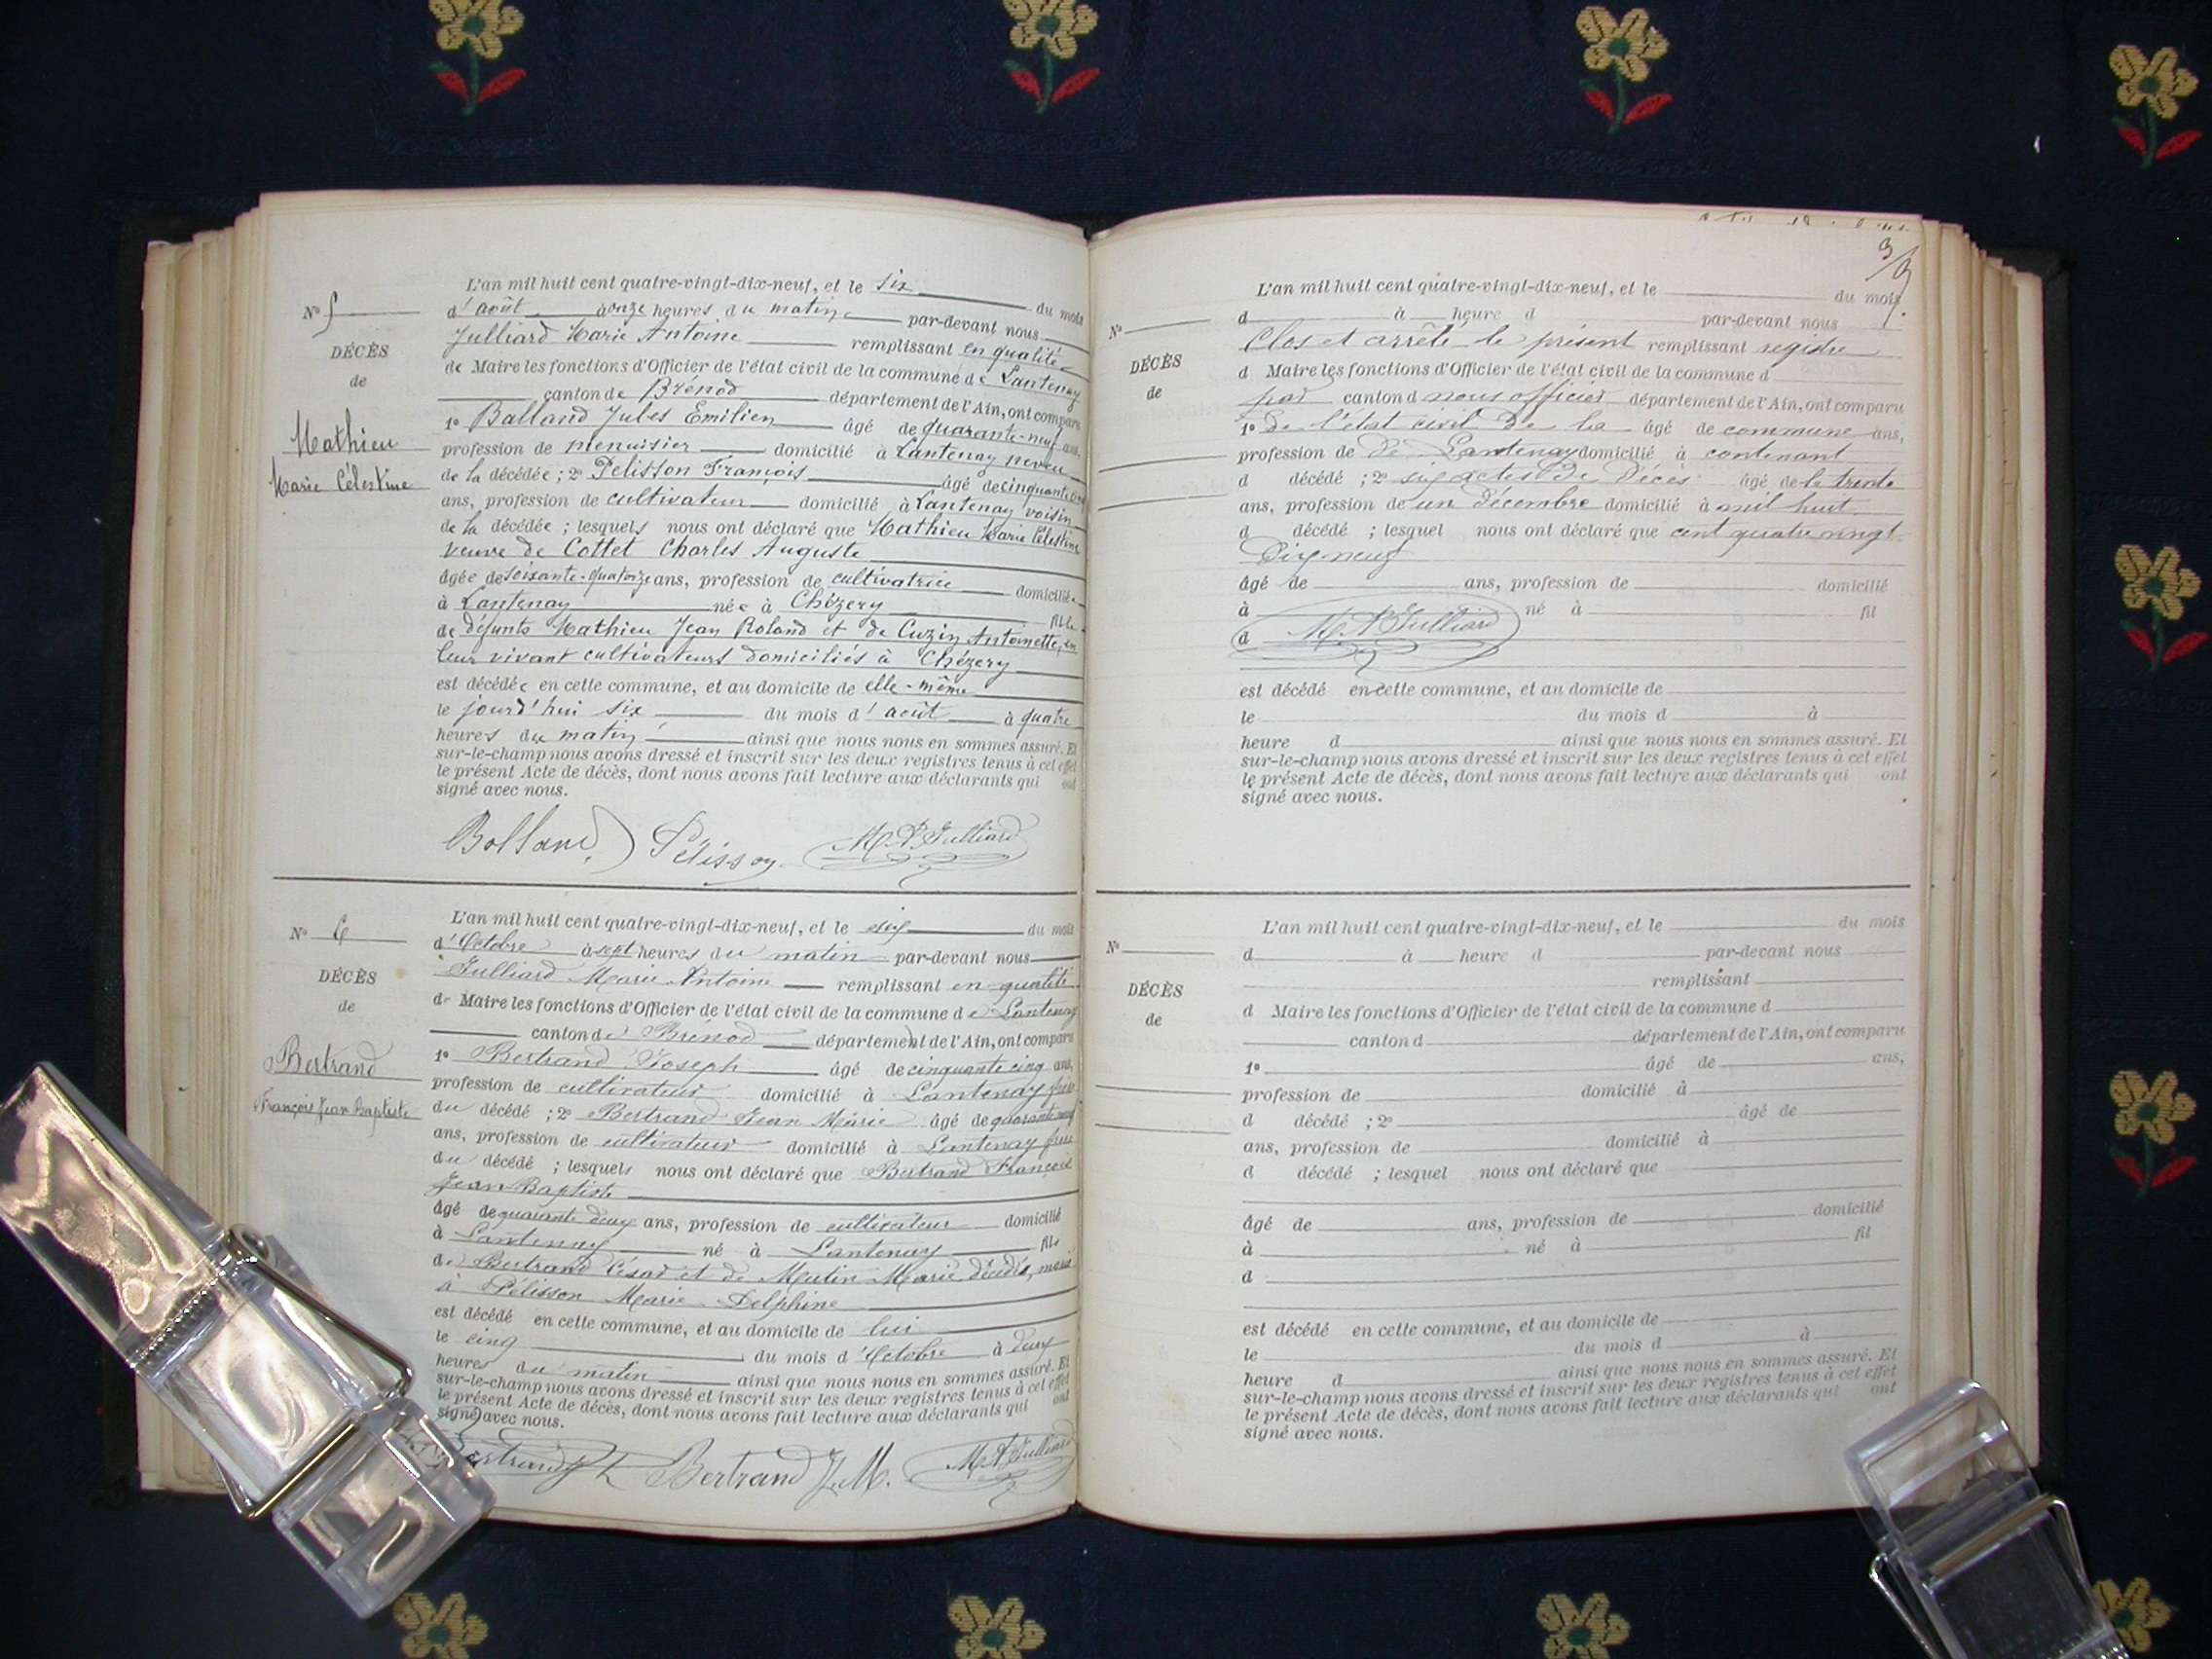 L'an mil huit cent quatre-vingt-dix-neuf, et le six du mois
N° 5 d'août à onze heures du matin par-devant nous
Julliard Marie Antoine remplissant en qualité
DÉCÈS
de Maire les fonctions d'Officier de l'état civil de la commune de Lantenay
de
canton de Brénod département de l'Ain, ont comparu
1° Balland Jules Emilien âgé de quarante-neuf ans,
Mathieu
profession de menuisier domicilié à Lantenay neveu
Marie Célestine
de la décédée ; 2° Pelisson François âgé de cinquante
ans, profession de cultivateur domicilié à Lantenay voisin
de la décédée ; lesquels nous ont déclaré que Mathieu Marie Célestine
veuve de Cottet Charles Auguste
âgée de soixante-quatorze ans, profession de cultivatrice domiciliée
à Lantenay née à Chézery fille
de défunts Mathieu Jean Roland et de Cuzin Antoinette, en
leur vivant cultivateurs domiciliés à Chézery
est décédée en cette commune, et au domicile de elle-même
le jourd'hui six du mois d'août à quatre
heures du matin ainsi que nous nous en sommes assuré. Et
sur-le-champ nous avons dressé et inscrit sur les deux registres tenus à cet effet
le présent Acte de décès, dont nous avons fait lecture aux déclarants qui ont
signé avec nous.
Bolland Pélisson M. A. Julliard
L'an mil huit cent quatre-vingt-dix-neuf, et le six du mois
N° 6 d'Octobre à sept heures du matin par-devant nous
Julliard Marie Antoine remplissant en qualité
DÉCÈS
de Maire les fonctions d'Officier de l'état civil de la commune de Lantenay
de
canton de Brénod département de l'Ain, ont comparu
1° Bertrand Joseph âgé de cinquante cinq ans,
Bertrand
profession de cultivateur domicilié à Lantenay frère
François Jean Baptiste
du décédé ; 2° Bertrand Jean Marie âgé de quarante neuf
ans, profession de cultivateur domicilié à Lantenay frère
du décédé ; lesquels nous ont déclaré que Bertrand François
Jean Baptiste
âgé de quarante deux ans, profession de cultivateur domicilié
à Lantenay né à Lantenay fils
de Bertrand César et de Mutin Marie décédés, marié
à Pélisson Marie Delphine
est décédé en cette commune, et au domicile de lui
le cinq du mois d'Octobre à deux
heures du matin ainsi que nous nous en sommes assuré. Et
sur-le-champ nous avons dressé et inscrit sur les deux registres tenus à cet effet
le présent Acte de décès, dont nous avons fait lecture aux déclarants qui ont
signé avec nous.
Bertrand Jh Bertrand J. M. M. A. Julliard
L'an mil huit cent quatre-vingt-dix-neuf, et le du mois
N° d à heure d par-devant nous
Clos et arrêté le présent remplissant registre
DÉCÈS
d Maire les fonctions d'Officier de l'état civil de la commune d
de
par canton d nous officier département de l'Ain, ont comparu
1° de l'état civil de la âgé de commune ans,
profession de de Lantenay domicilié à contenant
d décédé ; 2° six actes de Décès âgé de le trente
ans, profession de un décembre domicilié à mil huit
d décédé ; lesquel nous ont déclaré que cent quatre vingt
Dix neuf
âgé de ans, profession de domicilié
à né à fil
d M. A. Julliard
est décédé en cette commune, et au domicile de
le du mois d à
heure d ainsi que nous nous en sommes assuré. Et
sur-le-champ nous avons dressé et inscrit sur les deux registres tenus à cet effet
le présent Acte de décès, dont nous avons fait lecture aux déclarants qui ont
signé avec nous.
L'an mil huit cent quatre-vingt-dix-neuf, et le du mois
N° d à heure d par-devant nous
remplissant
DÉCÈS
d Maire les fonctions d'Officier de l'état civil de la commune d
de
canton d département de l'Ain, ont comparu
1° âgé de ans,
profession de domicilié à
d décédé ; 2° âgé de
ans, profession de domicilié à
d décédé ; lesquel nous ont déclaré que
âgé de ans, profession de domicilié
à né à fil
d
est décédé en cette commune, et au domicile de
le du mois d à
heure d ainsi que nous nous en sommes assuré. Et
sur-le-champ nous avons dressé et inscrit sur les deux registres tenus à cet effet
le présent Acte de décès, dont nous avons fait lecture aux déclarants qui ont
signé avec nous.